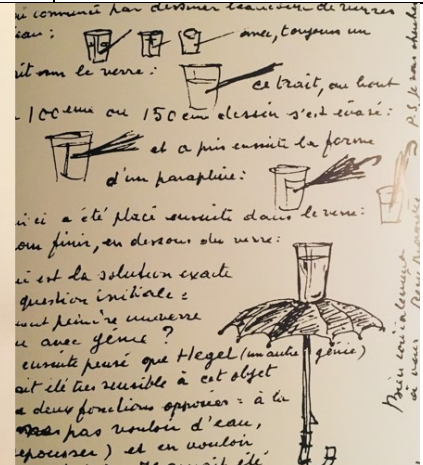 ai commencé par dessiner beaucoup de verres
eau : avec, toujours un
ait sur le verre : ce trait, au bout
100ème ou 150ème dessin s'est évasé :
et a pris ensuite la forme
d'un parapluie :
ui-ci a été placé ensuite dans le verre :
our finir, en dessous du verre :
i est la solution exacte
question initiale :
peindre un verre
u avec génie ?
ensuite pensé que Hegel (un autre génie)
ait été très sensible à cet objet
a deux fonctions opposées : à la
pas vouloir d'eau,
epousser) et en vouloir
été
P.S. Je vous
Bien cordialement
à vous René Magritte